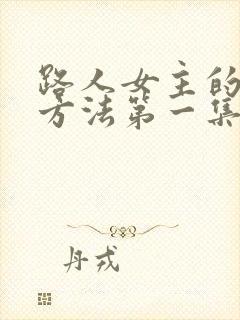 路人女主的
方法第一集
丹戎